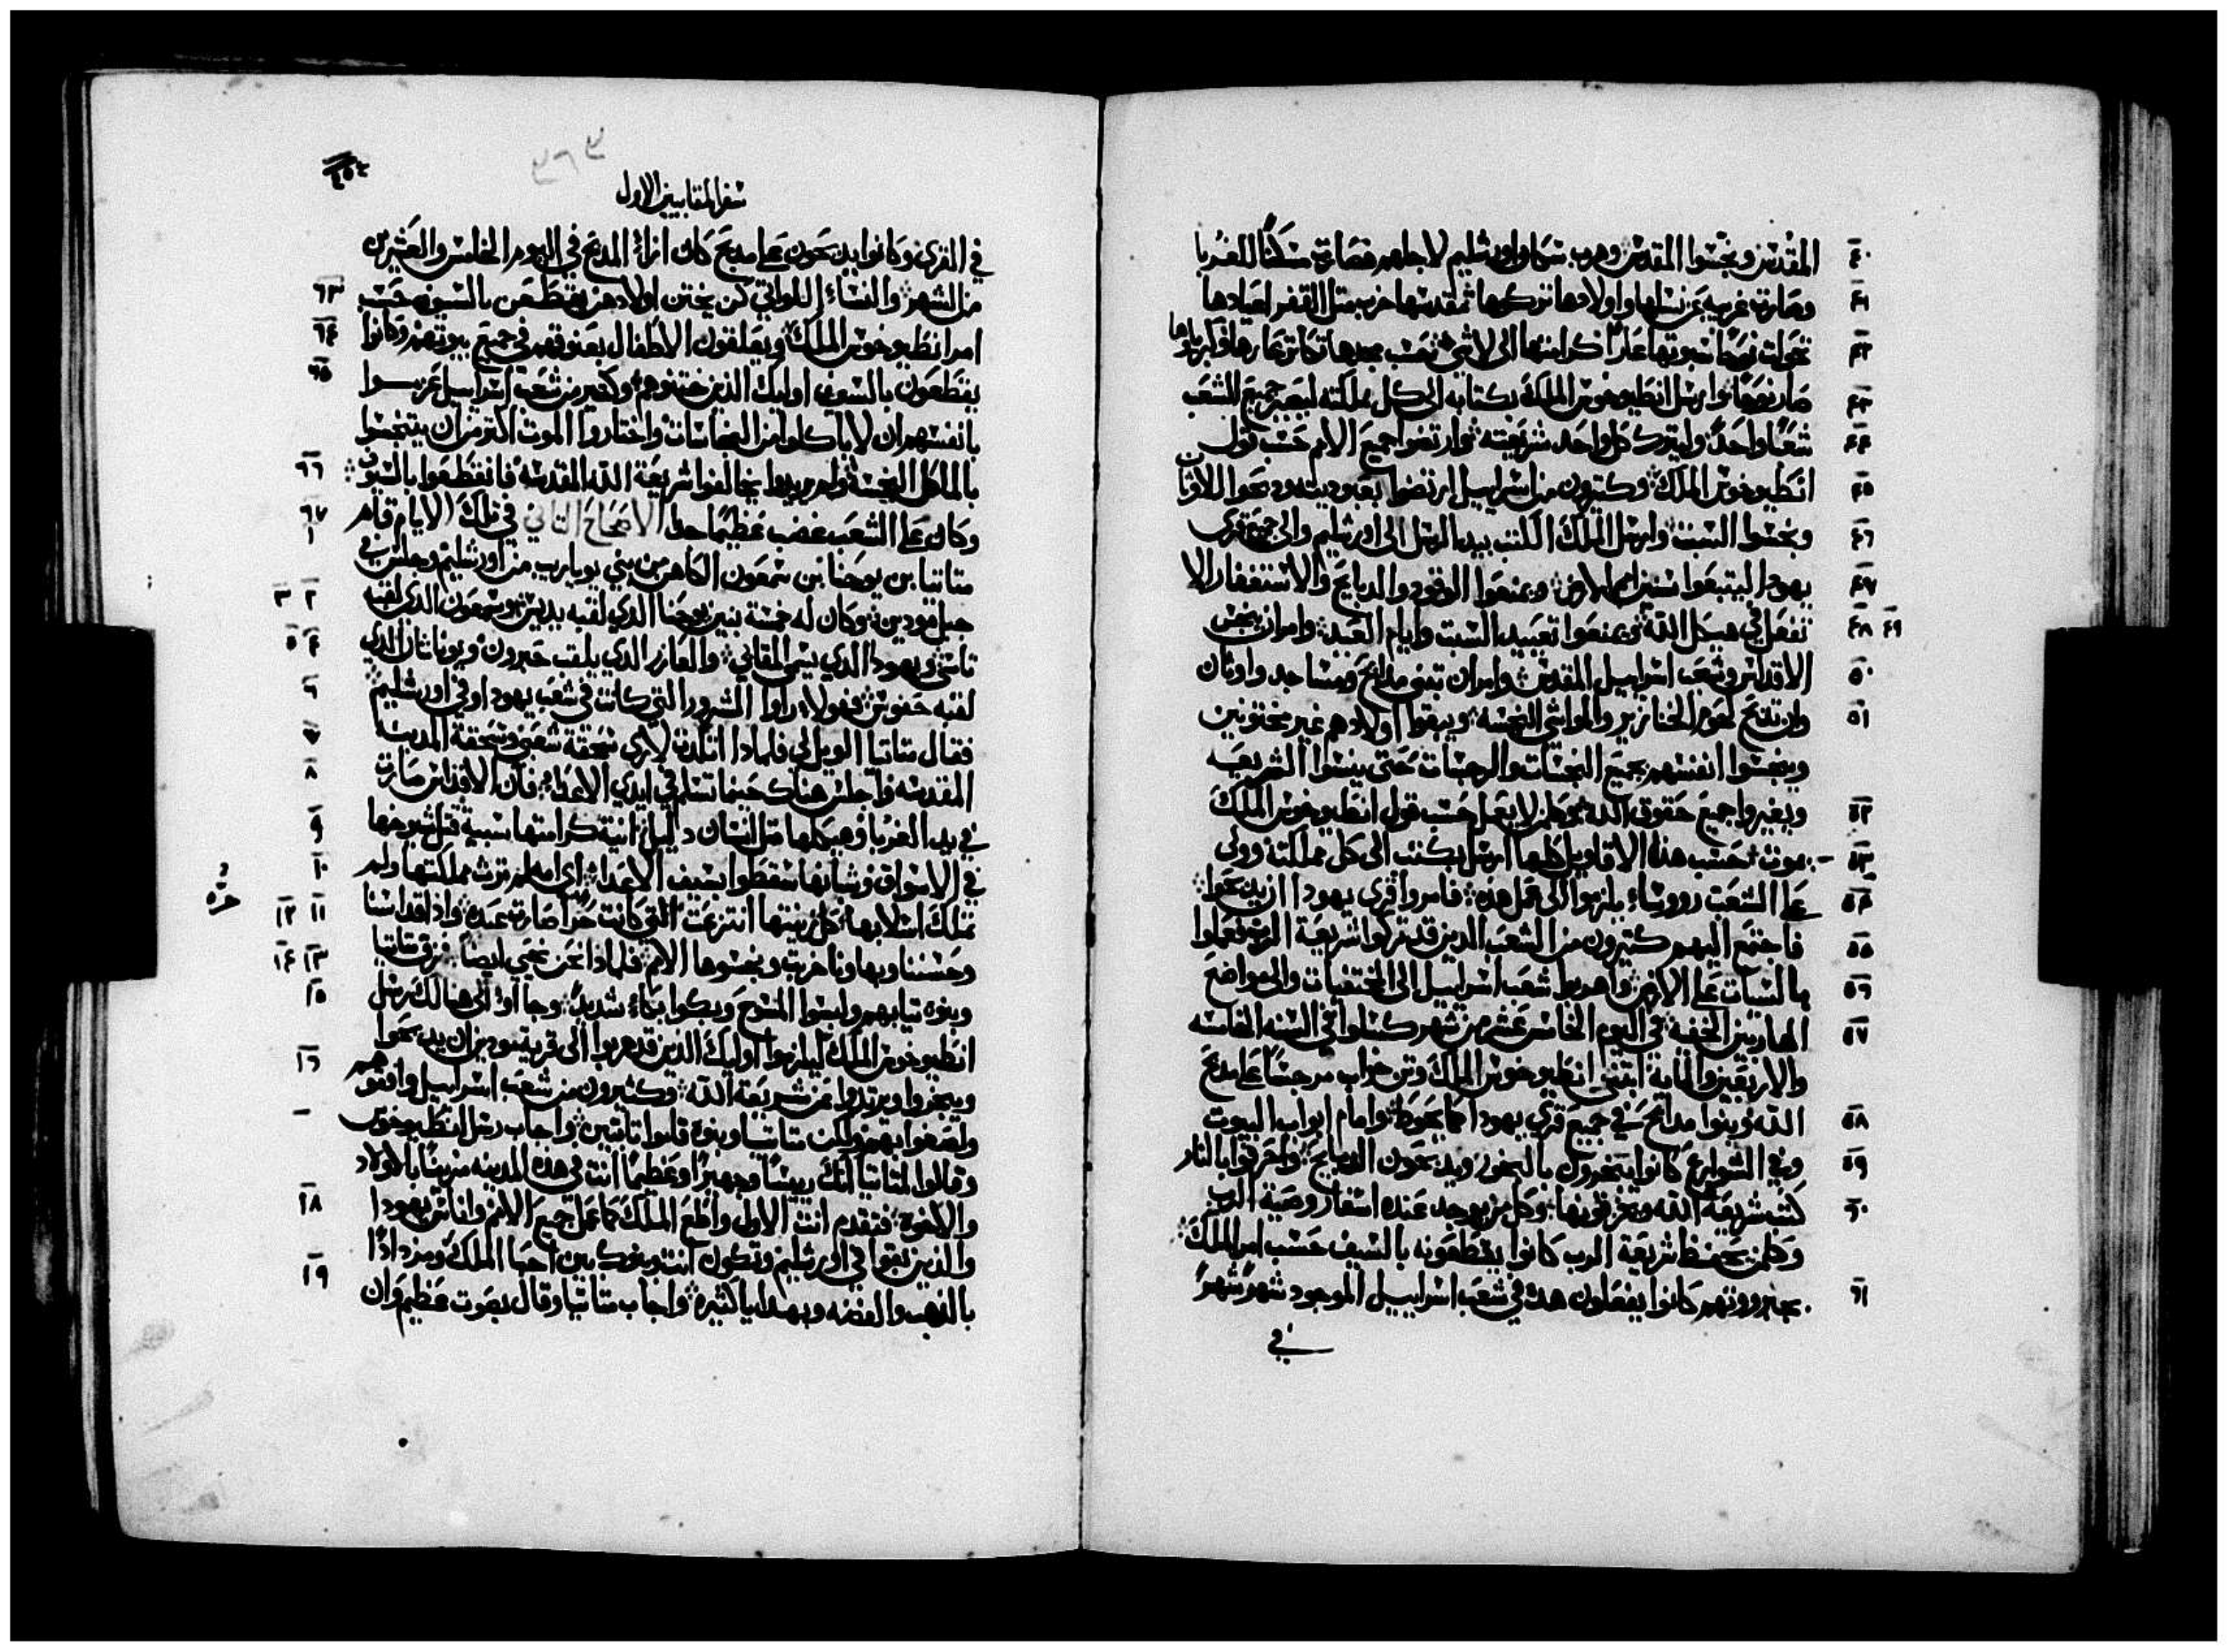 المقدس ونجسوا المقدس وهرب سكان اورشليم لاجلهم فصارت مسكنًا للغربا
وصارت غريبه عن نسلها واولادها تركوها ثم مقدسها خرب مثل القفر اعيادها
تحولت نوحًا سبوتها عارًا كرامتها الى لا شي حسب مجدها تكاثر عارها
صار نوحًا وارسل انطيوخوس الملك بكتابه الى كل مملكته ليصير جميع الشعب
شعبًا واحدًا وليترك كل واحد شريعته وارتضوا جميع الامم حسب قول
انطيوخوس الملك وكثيرون من اسراييل ارتضوا بعبوديته ودبحوا للاوثان
ونجسوا السبت وارسل الملك الكتب بيد الرسل الى اورشليم والى جميع قرى
يهودا ليتبعوا سنن امم الارض ويمنعوا الوقود والدبايح والاستغفار الا
تفعل في هيكل الله ويمنعوا تعييد السبت وايام العيد وامر ان ينجس
الاقداس وشعب اسراييل المقدس وامر ان تبنى مدابح ومساجد واوثان
وان تدبح لحوم الخنازير والمواشي النجسه ويبقوا اولادهم غير مختونين
وينجسوا انفسهم بجميع النجسات والرجسات حتى ينسوا الشريعه
ويغيروا جميع حقوق الله وكلمن لا يعمل حسب قول انطيوخوس الملك
يموت حسب هذه الاقاويل كلها ارسل بكتب الى كل مملكته وولى
على الشعب رووساء يلزموا الى عمل هذه فامروا قرى يهودا ان يدبحوا
فاجتمع اليهم كثيرون من الشعب الدين قد تركوا شريعة الرب وعملوا
بالسيات على الارض واهربوا شعب اسراييل الى المختفيات والى مواضع
الهاربين الخفيه في اليوم الخامس عشر من شهر كسلوا في السنه الخامسه
والاربعين والمايه ابتنى انطيوخوس الملك وثن خراب مرجسًا على مدبح
الله وبنوا مدابح في جميع قرى يهودا كما يحوط وامام ابواب البيوت
وفي الشوارع كانوا يبخرون بالبخور ويدبحون الدبايح واحرقوا بالنار
كتب شريعة الله ومزقوها وكل من يوجد عنده اسفار وصية الرب
وكلمن يحفظ شريعة الرب كانوا يقطعونه بالسيف حسب امر الملك
بجبروتهم كانوا يفعلون هدا في شعب اسراييل الموجود شهرً شهرً
في
سفر المقابيين الاول
في القرى وكانوا يدبحون على مدبح كان ازاء المدبح في اليوم الخامس والعشرين
من الشهر والنساء اللواتي كن يختن اولادهن يقطعن بالسيوف حسب
امر انطيوخوس الملك ويعلقون الاطفال بعنوقهم في جميع بيوتهم وكانوا
يقطعون بالسيوف اوليك الدين ختنوهم وكثير من شعب اسراييل عزموا
بانفسهم ان لا ياكلوا من النجاسات واختاروا الموت اكثر من ان يتنجسوا
بالماكل النجسه ولم يريدوا يخالفوا شريعة الله المقدسه فانقطعوا بالسيوف
وكان على الشعب غضب عظيمًا جدا الاصحاح التاني في تلك الايام قام
متاتيا بن يوحنا بن شمعون الكاهن من بني يوياريب من اورشليم وجلس في
جبل مودين وكان له خمسة بنين يوحنا الدي لقبه بديس وشمعون الدي لقبه
تاسي ويهودا الدي يسمى المقابي والعازر الدي يلقب حبرون ويوناتان الدي
لقبه حفوس فهولاء راوا الشرور التي كانت في شعب يهودا وفي اورشليم
فقال متاتيا الويل لي فلمادا اتلدت لارى سحقة شعبي وسحقة المدينه
المقدسه واجلس هناك حينما تسلم في ايدي الاعداء فان الاقداس صارت
في يد الغربا وهيكلها مثل انسان دليل انية كرامتها سبية قتل شيوخها
في الاسواق وشبانها سقطوا بسيف الاعداء اي امه لم ترث مملكتها ولم
تملك اسلابها كل زينتها انتزعت التي كانت حره صارت عبده واذ اقداسنا
وحسننا وبهاونا خربت ونجسوها الامم فلمادا نحن نحيى ايضًا فمزق متاتيا
وبنوه تيابهم ولبسوا المسوح وبكوا بكاء شديدًا وجاءوا الى هنالك رسل
انطيوخوس الملك ليلزموا اوليك الذين قد هربوا الى قرية مودين ان يدبحوا
ويبخروا ويرتدوا عن شريعة الله وكثيرون من شعب اسراييل وافقوهم
ولصقوا بهم ولكن متاتيا وبنوه قاموا تابتين واجاب رسل انطيوخوس
وقالوا لمتاتيا انك رييسًا وجهيرًا وعظيمًا انت في هذه المدينه مزينًا بالاولاد
والاخوه فتقدم انت الاول واطع الملك كما عمل جميع الامم واناس يهودا
والذين بقوا في اورشليم وتكون انت وبنوك بين احبا الملك ومزدادًا
بالدهب والفضه وبهدايا كثيره واجاب متاتيا وقال بصوت عظيم وان